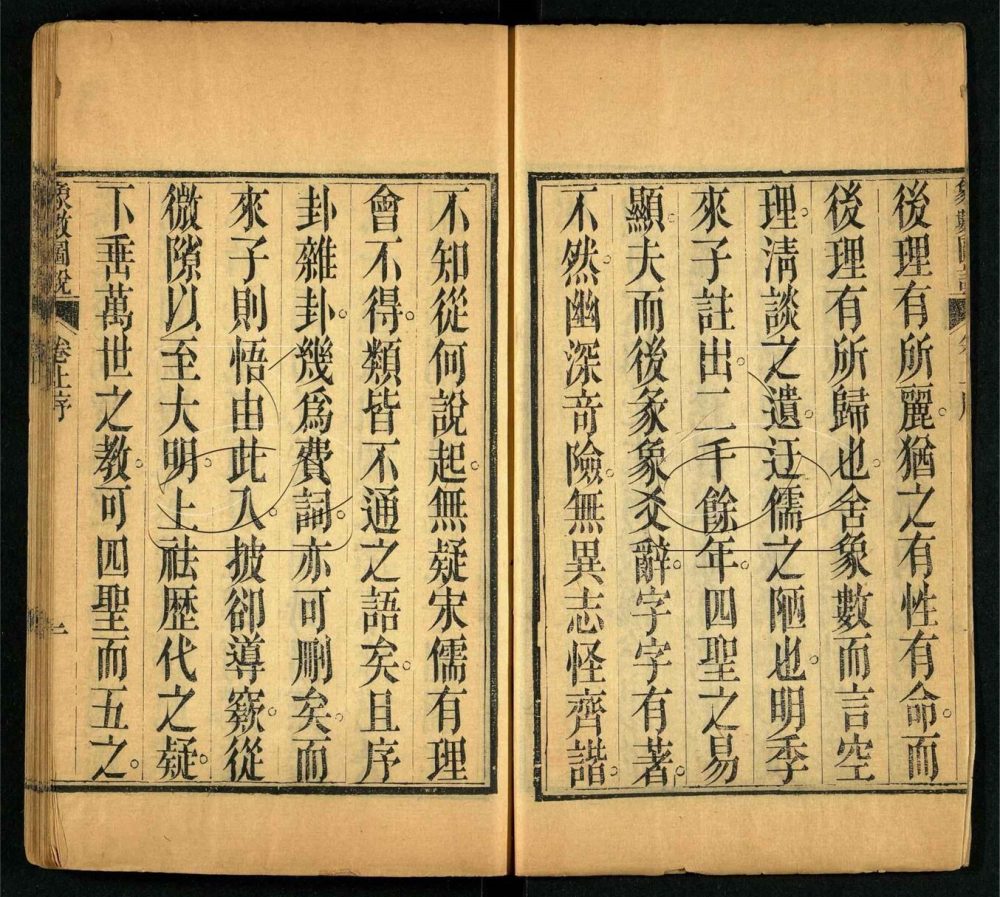 後理有所麗。猶之有性有命。而
後理有所歸也。舍象數而言空
理。清談之遺。迂儒之陋也。明季
來子註出。二千餘年。四聖之易
顯。夫而後彖象爻辭。字字有著。
不然。幽深奇險。無異志怪齊諧。
象數圖說
不知從何說起。無疑宋儒有理
會不得。類皆不通之語矣。且序
卦雜卦。幾爲費詞。亦可刪矣。而
來子則悟由此入。披卻導窾。從
微隙以至大明。上祛歷代之疑。
下垂萬世之教。可四聖而五之。
象數圖說
卷上序
一